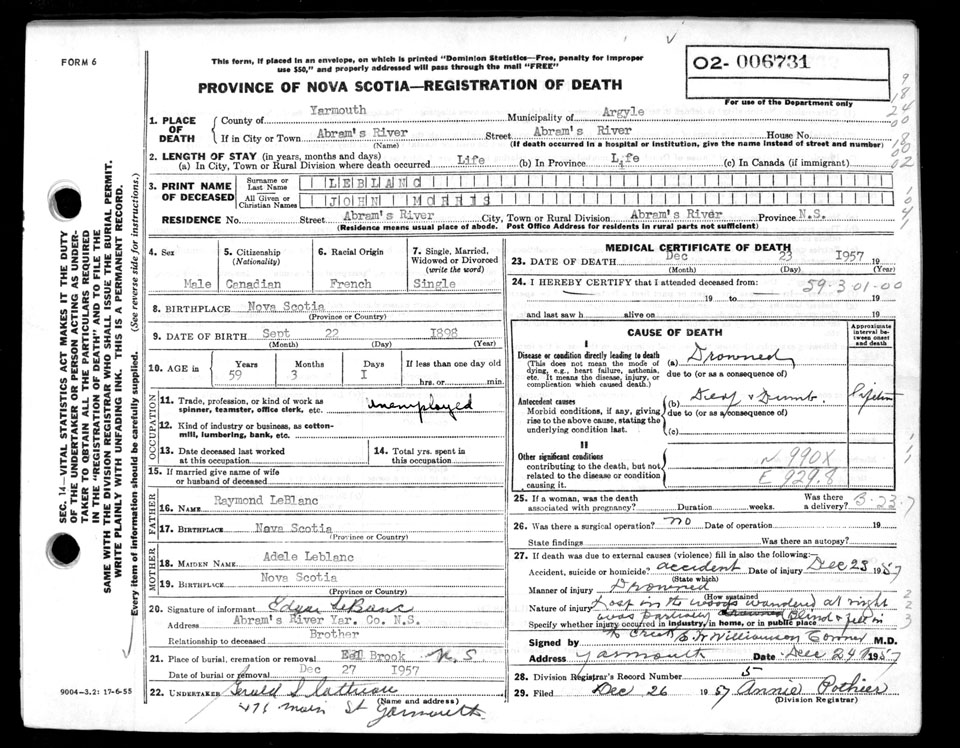 FORM 6
This form, if placed in an envelope, on which is printed "Dominion Statistics—Free, penalty for improper
use $50," and properly addressed will pass through the mail "FREE"
O2- 006731
For use of the Department only
PROVINCE OF NOVA SCOTIA—REGISTRATION OF DEATH
1. PLACE OF DEATH
County of Yarmouth Municipality of Argyle
If in City or Town Abram's River Street Abram's River House No.
(Name) (If death occurred in a hospital or institution, give the name instead of street and number)
2. LENGTH OF STAY (in years, months and days)
(a) In City, Town or Rural Division where death occurred Life (b) In Province Life (c) In Canada (if immigrant)
3. PRINT NAME OF DECEASED
Surname or Last Name LEBLANC
All Given or Christian Names JOHN MORRIS
RESIDENCE No. Street Abram's River City, Town or Rural Division Abram's River Province N.S.
(Residence means usual place of abode. Post Office Address for residents in rural parts not sufficient)
4. Sex Male
5. Citizenship (Nationality) Canadian
6. Racial Origin French
7. Single, Married, Widowed or Divorced (write the word) Single
8. BIRTHPLACE Nova Scotia
(Province or Country)
9. DATE OF BIRTH Sept 22 1898
(Month) (Day) (Year)
10. AGE Years 59 Months 3 Days I If less than one day old hrs. or min.
OCCUPATION
11. Trade, profession, or kind of work as spinner, teamster, office clerk, etc. Unemployed
12. Kind of industry or business, as cotton-mill, lumbering, bank, etc.
13. Date deceased last worked at this occupation
14. Total yrs. spent in this occupation
15. If married give name of wife or husband of deceased
FATHER
16. NAME Raymond LeBlanc
17. BIRTHPLACE Nova Scotia
(Province or Country)
MOTHER
18. MAIDEN NAME Adele Leblanc
19. BIRTHPLACE Nova Scotia
(Province or Country)
20. Signature of informant Edgar LeBlanc
Address Abram's River Yar. Co. N.S.
Relationship to deceased Brother
21. Place of burial, cremation or removal Eel Brook N.S
Date of burial or removal Dec 27 I957
22. UNDERTAKER Gerald S
(Name and address)
Main St Yarmouth
9004-3.2: 17-6-55
MEDICAL CERTIFICATE OF DEATH
23. DATE OF DEATH Dec 23 I957 19
(Month) (Day) (Year)
24. I HEREBY CERTIFY that I attended deceased from:
59-3 01-00
19 to 19
and last saw h alive on 19
CAUSE OF DEATH
Approximate interval between onset and death
I
Disease or condition directly leading to death (a) Drowned
(This does not mean the mode of dying, e.g., heart failure, asthenia, etc. It means the disease, injury, or complication which caused death.)
due to (or as a consequence of)
Antecedent causes (b) Deaf & Dumb. lifetime
Morbid conditions, if any, giving rise to the above cause, stating the underlying condition last.
due to (or as a consequence of)
(c)
II
Other significant conditions
contributing to the death, but not related to the disease or condition causing it.
N 990X
E 929.8
25. If a woman, was the death associated with pregnancy? Duration weeks. Was there a delivery?
26. Was there a surgical operation? no Date of operation 19
State findings Was there an autopsy?
27. If death was due to external causes (violence) fill in also the following:
Accident, suicide or homicide? accident Date of injury Dec 23 1957
(State which)
Manner of injury Drowned
(How sustained)
Nature of injury Lost in the woods wandered at night
was partially blind & fell in
Specify whether injury occurred in industry, in home, or in public place
Signed by Williamson Coroner M.D.
Address Yarmouth Date Dec 24 1957
28. Division Registrar's Record Number 5
29. Filed Dec 26 1957 Annie Pothier
(Division Registrar)
SEC. 14—VITAL STATISTICS ACT MAKES IT THE DUTY
OF THE UNDERTAKER OR PERSON ACTING AS UNDER-
TAKER TO OBTAIN ALL THE PARTICULARS REQUIRED
IN THE "REGISTRATION OF DEATH" AND TO FILE THE
SAME WITH THE DIVISION REGISTRAR WHO SHALL ISSUE THE BURIAL PERMIT.
WRITE PLAINLY WITH UNFADING INK. THIS IS A PERMANENT RECORD.
Every item of information should be carefully supplied. (See reverse side for instructions.)